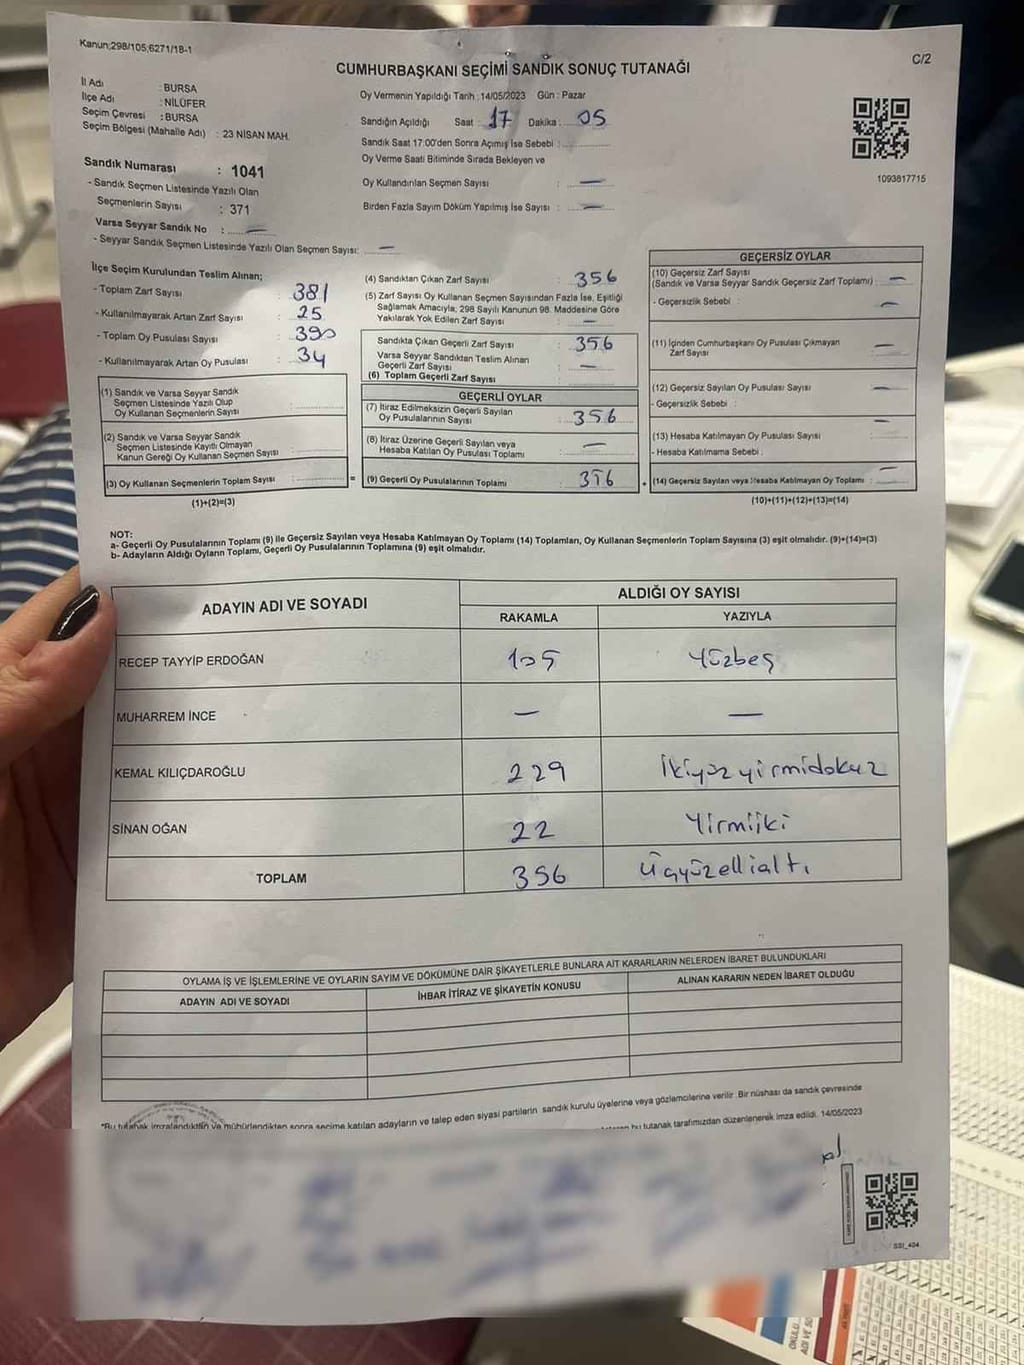 Kanun;298/105;6271/18-1
C/2
CUMHURBAŞKANI SEÇİMİ SANDIK SONUÇ TUTANAĞI
İl Adı : BURSA
İlçe Adı : NİLÜFER
Seçim Çevresi : BURSA
Seçim Bölgesi (Mahalle Adı) : 23 NİSAN MAH.
Oy Vermenin Yapıldığı Tarih : 14/05/2023 Gün : Pazar
Sandığın Açıldığı Saat : 17 Dakika : 05
Sandık Saat 17:00'den Sonra Açımış İse Sebebi :
Oy Verme Saati Bitiminde Sırada Bekleyen ve
Oy Kullandırılan Seçmen Sayısı : —
Birden Fazla Sayım Döküm Yapılmış İse Sayısı : —
1093817715
Sandık Numarası : 1041
- Sandık Seçmen Listesinde Yazılı Olan
Seçmenlerin Sayısı : 371
Varsa Seyyar Sandık No : —
- Seyyar Sandık Seçmen Listesinde Yazılı Olan Seçmen Sayısı: —
İlçe Seçim Kurulundan Teslim Alınan;
- Toplam Zarf Sayısı : 381
- Kullanılmayarak Artan Zarf Sayısı : 25
- Toplam Oy Pusulası Sayısı : 390
- Kullanılmayarak Artan Oy Pusulası : 34
(1) Sandık ve Varsa Seyyar Sandık
Seçmen Listesinde Yazılı Olup
Oy Kullanan Seçmenlerin Sayısı :
(2) Sandık ve Varsa Seyyar Sandık
Seçmen Listesinde Kayıtlı Olmayan
Kanun Gereği Oy Kullanan Seçmen Sayısı :
(3) Oy Kullanan Seçmenlerin Toplam Sayısı : =
(1)+(2)=(3)
(4) Sandıktan Çıkan Zarf Sayısı : 356
(5) Zarf Sayısı Oy Kullanan Seçmen Sayısından Fazla İse, Eşitliği
Sağlamak Amacıyla; 298 Sayılı Kanunun 98. Maddesine Göre
Yakılarak Yok Edilen Zarf Sayısı : —
Sandıkta Çıkan Geçerli Zarf Sayısı : 356
Varsa Seyyar Sandıktan Teslim Alınan
Geçerli Zarf Sayısı : —
(6) Toplam Geçerli Zarf Sayısı :
GEÇERLİ OYLAR
(7) İtiraz Edilmeksizin Geçerli Sayılan
Oy Pusulalarının Sayısı : 356
(8) İtiraz Üzerine Geçerli Sayılan veya
Hesaba Katılan Oy Pusulası Toplamı : —
(9) Geçerli Oy Pusulalarının Toplamı : 356 +
GEÇERSİZ OYLAR
(10) Geçersiz Zarf Sayısı
(Sandık ve Varsa Seyyar Sandık Geçersiz Zarf Toplamı) : —
- Geçersizlik Sebebi : —
(11) İçinden Cumhurbaşkanı Oy Pusulası Çıkmayan
Zarf Sayısı : —
(12) Geçersiz Sayılan Oy Pusulası Sayısı : —
- Geçersizlik Sebebi :
(13) Hesaba Katılmayan Oy Pusulası Sayısı : —
- Hesaba Katılmama Sebebi :
(14) Geçersiz Sayılan veya Hesaba Katılmayan Oy Toplamı : —
(10)+(11)+(12)+(13)=(14)
NOT:
a- Geçerli Oy Pusulalarının Toplamı (9) ile Geçersiz Sayılan veya Hesaba Katılmayan Oy Toplamı (14) Toplamları, Oy Kullanan Seçmenlerin Toplam Sayısına (3) eşit olmalıdır. (9)+(14)=(3)
b- Adayların Aldığı Oyların Toplamı, Geçerli Oy Pusulalarının Toplamına (9) eşit olmalıdır.
ADAYIN ADI VE SOYADI ALDIĞI OY SAYISI
RAKAMLA YAZIYLA
RECEP TAYYİP ERDOĞAN 105 Yüzbeş
MUHARREM İNCE — —
KEMAL KILIÇDAROĞLU 229 İkiyüzyirmidokuz
SİNAN OĞAN 22 Yirmiiki
TOPLAM 356 Üçyüzellialtı
OYLAMA İŞ VE İŞLEMLERİNE VE OYLARIN SAYIM VE DÖKÜMÜNE DAİR ŞİKAYETLERLE BUNLARA AİT KARARLARIN NELERDEN İBARET BULUNDUKLARI
ADAYIN ADI VE SOYADI İHBAR İTİRAZ VE ŞİKAYETİN KONUSU ALINAN KARARIN NEDEN İBARET OLDUĞU
*Bu tutanak imzalandıktan ve mühürlendikten sonra seçime katılan adayların ve talep eden siyasi partilerin sandık kurulu üyelerine veya gözlemcilerine verilir. Bir nüshası da sandık çevresinde
bu tutanak tarafımızdan düzenlenerek imza edildi. 14/05/2023
SSI_404